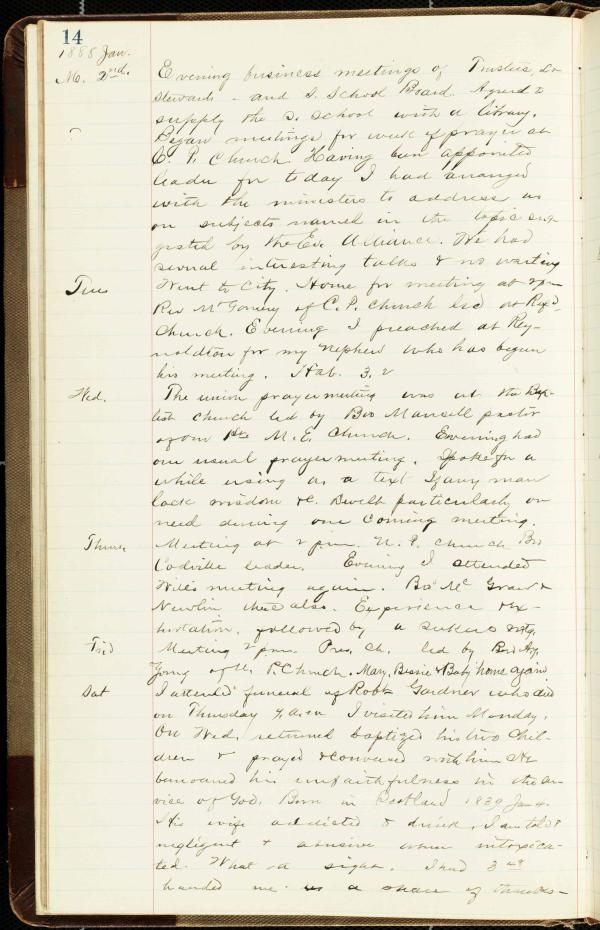 14
1888 Jan.
M. 2nd. Evening business meetings of Trustees, &
Stewards - and S. School Board. Agreed to
supply the S. School with a library.
Began meetings for week of prayer at
C. P. Church. Having been appointed
leader for today I had arranged
with the ministers to address us
on subjects named in the topic sug-
gested by the Ev. Alliance. We had
several interesting talks & no waiting
Tues Went to City. Home for meeting at 2 pm
Rev McGomery of C. P. Church led at
Church. Evening I preached at Rey-
noldton for my nephew who has begun
his meeting. Hab. 3, 2
Wed. The union prayermeeting was at the Bap-
tist church led by Bro Mansell pastor
of our M. E. Church. Evening had
our usual prayer meeting. Spoke for a
while using as a text If any man
lack wisdom &c. Dwelt particularly on
need during our coming meeting.
Thurs Meeting at 2 pm. U. P. Church Bro
leader. Evening I attended
Will's meeting again. Bro McGraw &
Newlin there also. Experience & ex-
hortation, followed by a seekers mtg.
Frid Meeting 2 pm. Pres. Ch. led by Bro
of U. P. Church. Mary, Bessie & Baby home again
Sat I attended funeral of Robt Gardner who died
on Thursday 4 a.m. I visited him Monday.
On Wed. returned baptized his two chil-
dren & prayed & conversed with him. He
bemoaned his unfaithfulness in the ser-
vice of God. Born in Scotland 1839 Jan 4.
His wife addicted to drink, I am told &
negligent & abusive when intoxica-
ted. What a sight. I had
handed me as a share of